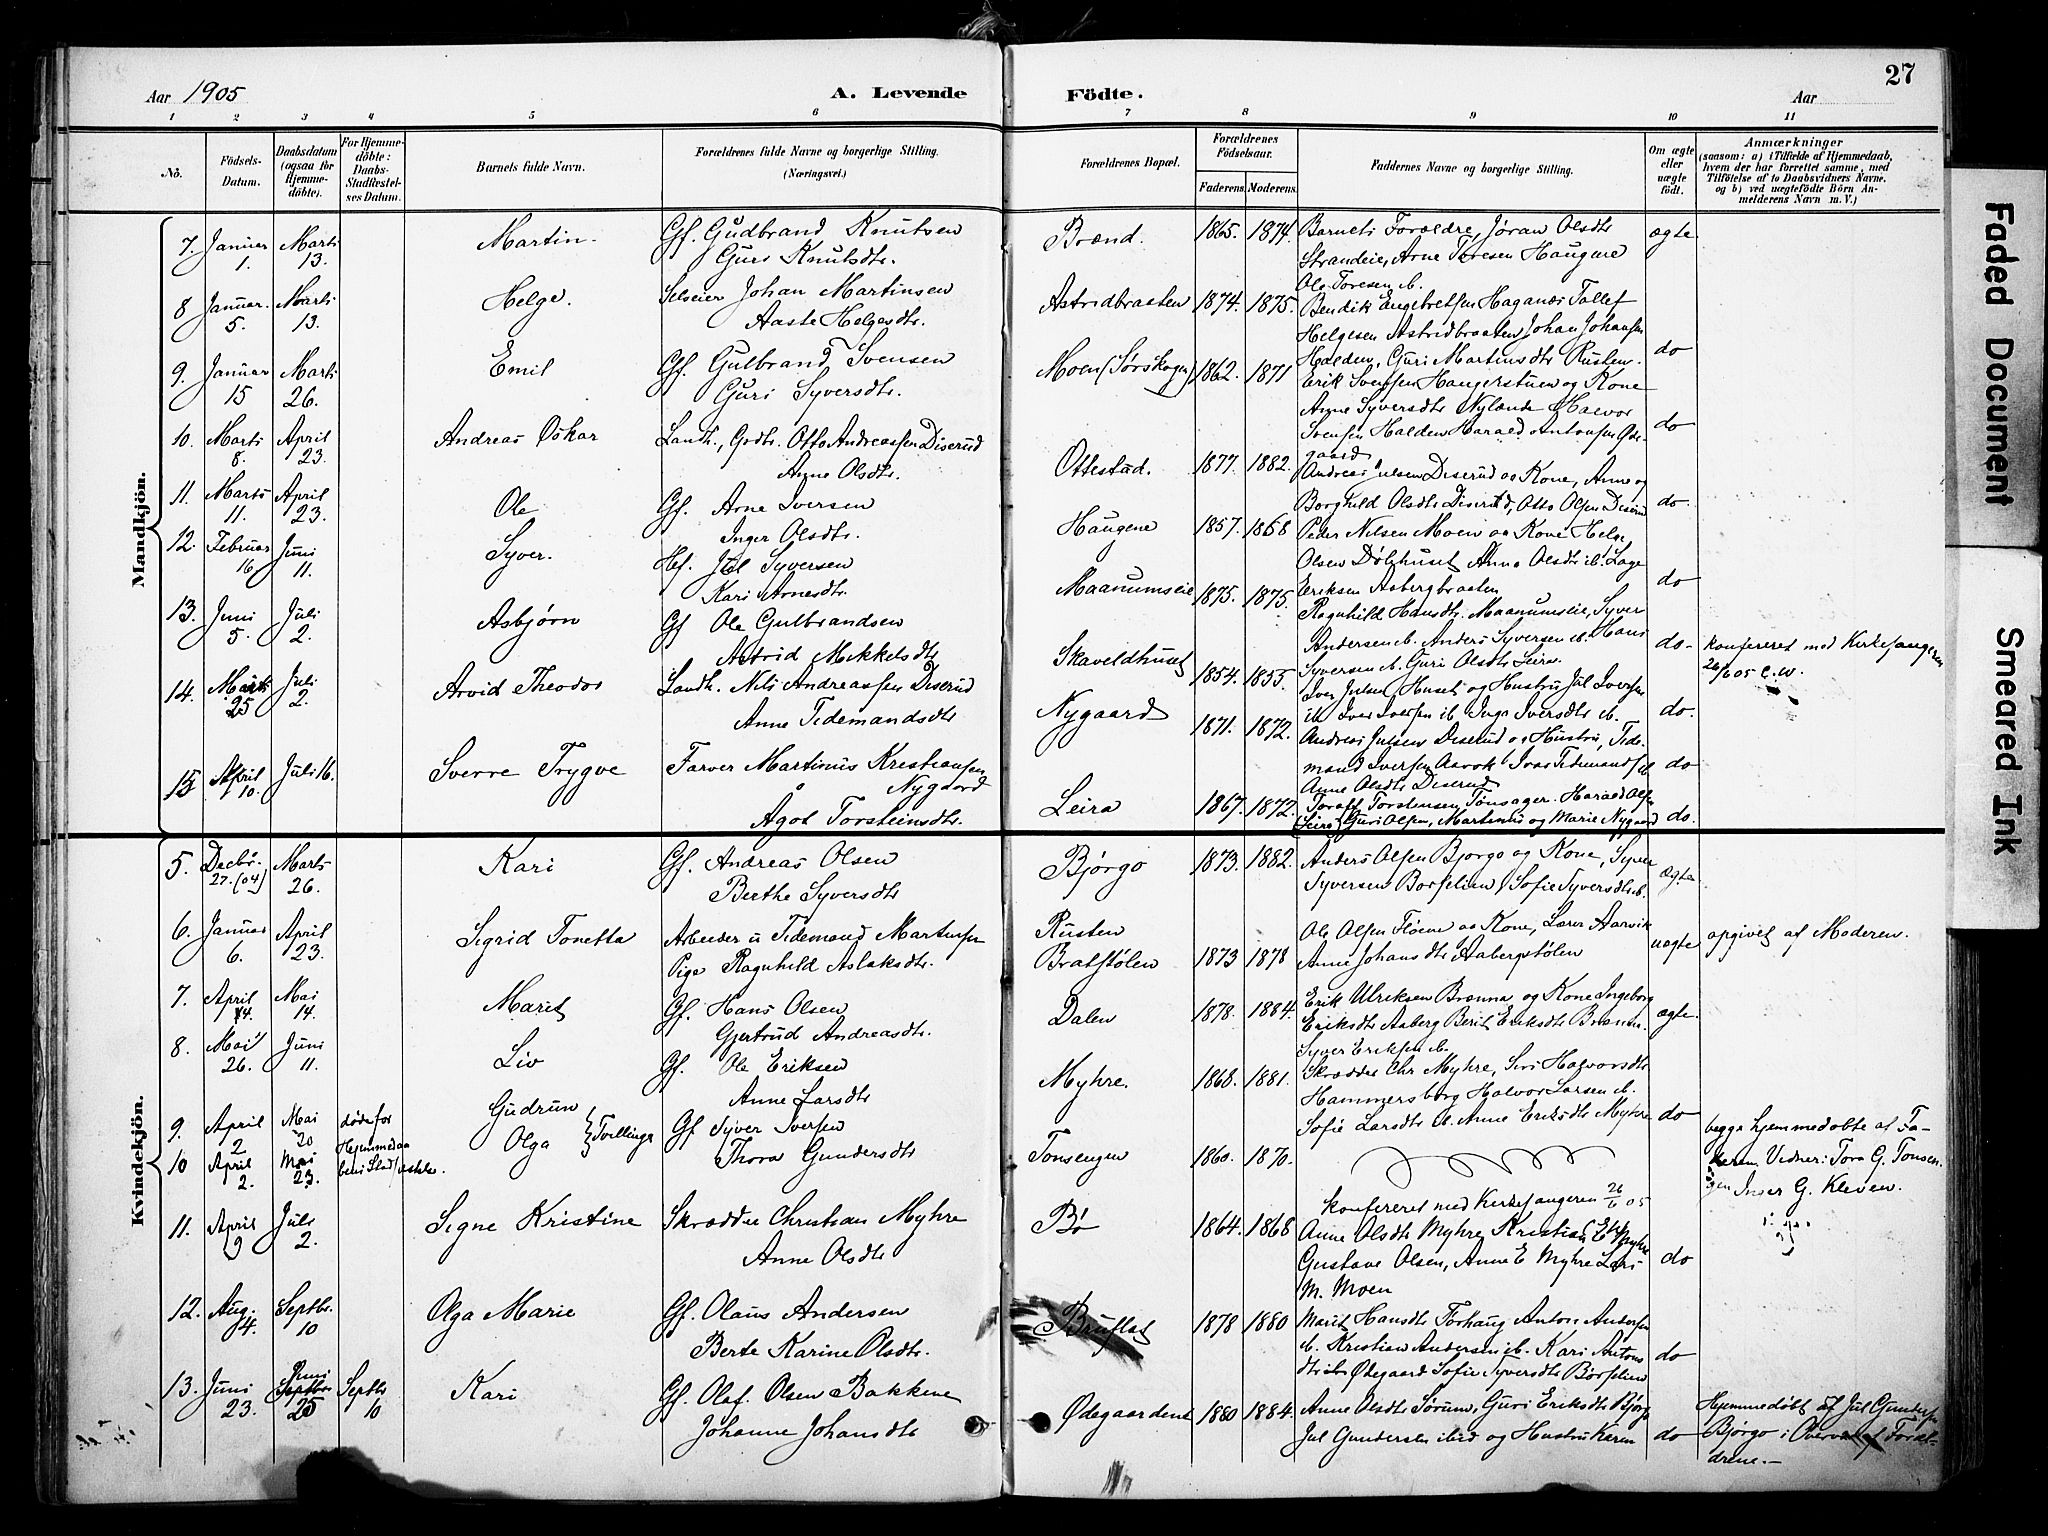 27
Aar 1905
A. Levende
Födte.
Aar
1 2 3 4 5 6 7 8 9 10 11
No.
Födsels-Datum.
Daabsdatum (ogsaa for Hjemmedöbte).
For Hjemmedöbte: Daabs-Stadfæstelses Datum.
Barnets fulde Navn.
Forældrenes fulde Navne og borgerlige Stilling. (Næringsvei.)
Forældrenes Bopæl.
Forældrenes Födselsaar.
Faderens. Moderens.
Faddernes Navne og borgerlige Stilling.
Om ægte eller uægte födt.
Anmærkninger
(saasom: a) i Tilfælde af Hjemmedaab, hvem der har forrettet samme, med Tilföielse af to Daabsvidners Navne. og b) ved uægtefödte Börn Anmelderens Navn m. V.)
Mandkjön.
7. Januar 1. Marts 13. Martin. Gf. Gudbrand Knutsen Guri Knutsdtr. Brænd. 1865. 1874. Barnets Forældre, Jøran Olsdtr Strandeie, Arne Toresen Haugene Ole Toresen ib. ægte
8 Januar. 5. Marts 13. Helge. Selveier Johan Martinsen Aaste Helgesdtr. Astridbraaten 1874. 1875. Bendik Engebretsen Haganæs Tollef Helgesen Astridbraaten, Johan Johansen Halden, Guri Martinsdtr Rusten. do
9. Januar 15 Marts 26. Emil Gf. Gulbrand Svensen Guri Syversdtr. Moen (Sørskogen) 1862. 1871 Erik Svensen Haugerstuen og Kone Anne Syversdtr Nylænde Halvor Svensen Halden Harald Antonsen Ødegaard do
10. Marts 8. April 23. Andreas Oskar Landh., Gdbr. Otto Andreassen Diserud Anne Olsdtr. Ottestad. 1877. 1882. Andreas Julsen Diserud og Kone, Anne og Borghild Olsdtr Diserud, Otto Olsen Diserud do.
11. Marts 11. April 23. Ole Gf. Arne Iversen Inger Olsdtr. Haugene 1857. 1868 Peder Nilsen Moen og Kone Helge Olsen Dølehuset Anne Olsdtr ib. Lage Eriksen Aasbergbraaten do
12. Februar 16 Juni 11. Syver. Hef. Jul Syversen Kari Arnesdtr. Maanumseie 1875. 1875. Ragnhild Hansdtr. Maanumseie, Syver Andersen ib. Anders Syversen ib. Hans Syversen ib. Guri Olsdtr Leira. do-
13. Juni 5. Juli 2. Asbjørn Gf Ole Gulbrandsen Astrid Mikkelsdtr Skaveldhuset 1854. 1855. Iver Julsen Huset og Hustru Jul Iversen ib Iver Iversen ib Inga Iversdtr ib. do. konfereret med Kirkesangeren 26/6 05 C.W.
14. Marts 25 Juli 2. Arvid Theodor Landh. Nils Andreassen Diserud Anne Tidemandsdtr Nygaard 1871. 1872. Andreas Julsen Diserud og Hustru, Tidemand Iversen Aavok Ivar Tidemandsen Anne Olsdtr Diserud do
15 April 10. Juli 16. Sverre Trygve Farver Martinus Kristiansen Nygaard Agot Torsteinsdtr. Leira 1867. 1872. Toralf Torstensen Tønsager. Harald Olsen Leira, Guri Olsen, Martinus og Marie Nygaard do.
Kvindekjön.
5. Decbr. 27. (04) Marts 26. Kari Gf. Andreas Olsen Berthe Syversdtr Bjørgo 1873. 1882. Anders Olsen Bjørgo og Kone, Syver Syversen Borselien, Sofie Syversdtr ib. ægte
6. Januar 6. April 23. Sigrid Tonetta Arbeider u Tidemand Martinsen Pige Ragnhild Aslaksdtr. Rusten Bratstølen 1873 1878 Ole Olsen Fløene og Kone, Lærer Aarvik Anne Johansdtr Aabergstølen uægte opgivet af Moderen.
7. April 14. Mai 14. Marit Gf. Hans Olsen Gjertrud Andreasdtr. Dalen 1878. 1884. Erik Ulriksen Brænna og Kone Ingeborg Eriksdtr Aaberg Berit Eriksdtr Brænna Syver Eriksen ib. ægte.
8. Mai 26. Juni 11. Liv Gf. Ole Eriksen Anne Larsdtr Myhre. 1868. 1881. Skrædder Chr Myhre, Siri Halvorsdtr Hammersborg Halvor Larsen ib. Sofie Larsdtr ib. Anne Eriksdtr Myhre do
9. April 2 Mai 20 døde før Gudrun
10 April 2. Mai 23. Hjemmedaaben Stadfæstede Olga } Tvillinge Gf Syver Iversen Thora Gundersdtr Tonsengen 1860. 1870. begge hjemmedøbte af Faderen. Vidner: Tora G. Tonsengen Inger G. Kleven.
konfereret med Kirkesangeren 26/6 05
11. April 9 Juli 2. Signe Kristine Skrædder Christian Myhre Anne Olsdtr Bø 1864. 1868 Anne Olsdtr Myhre, Kristian E Myhre Gustave Olsen, Anne E Myhre Lars M. Moen do
12. Aug. 4. Septbr. 10 Olga Marie Gf. Olaus Andersen Berte Karine Olsdtr. Bruflat 1878 1880 Marit Hansdtr Torhaug Anton Andersen ib. Kristian Andersen ib. Kari Antonsdtr ib Ødegaard Sofie Syversdtr Børselien do
13. Juni 23. Juni Septbr 25 Septbr 10 Kari Gf. Olaf Olsen Bakkene Johanne Johansdtr Ødegaardene 1880 1884. Anne Olsdtr Sørum, Guri Eriksdtr Bjørgo Jul Gundersen ibid og Hustru Karen do Hjemmedøbt af Jul Gundersen Bjørgo i Overvær af Forældrene.-
Faded Document
Smeared Ink